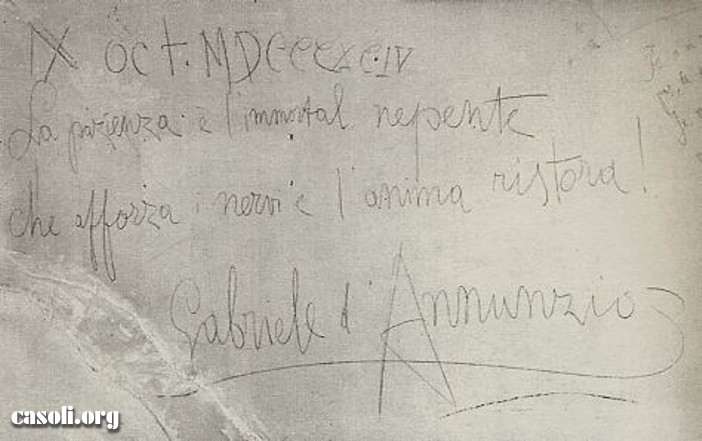 IX oct. MDCCCXCIV
La pazienza è l'immortal nepente
che afforza i nervi e l'anima ristora!
Gabriele d'Annunzio
casoli.org